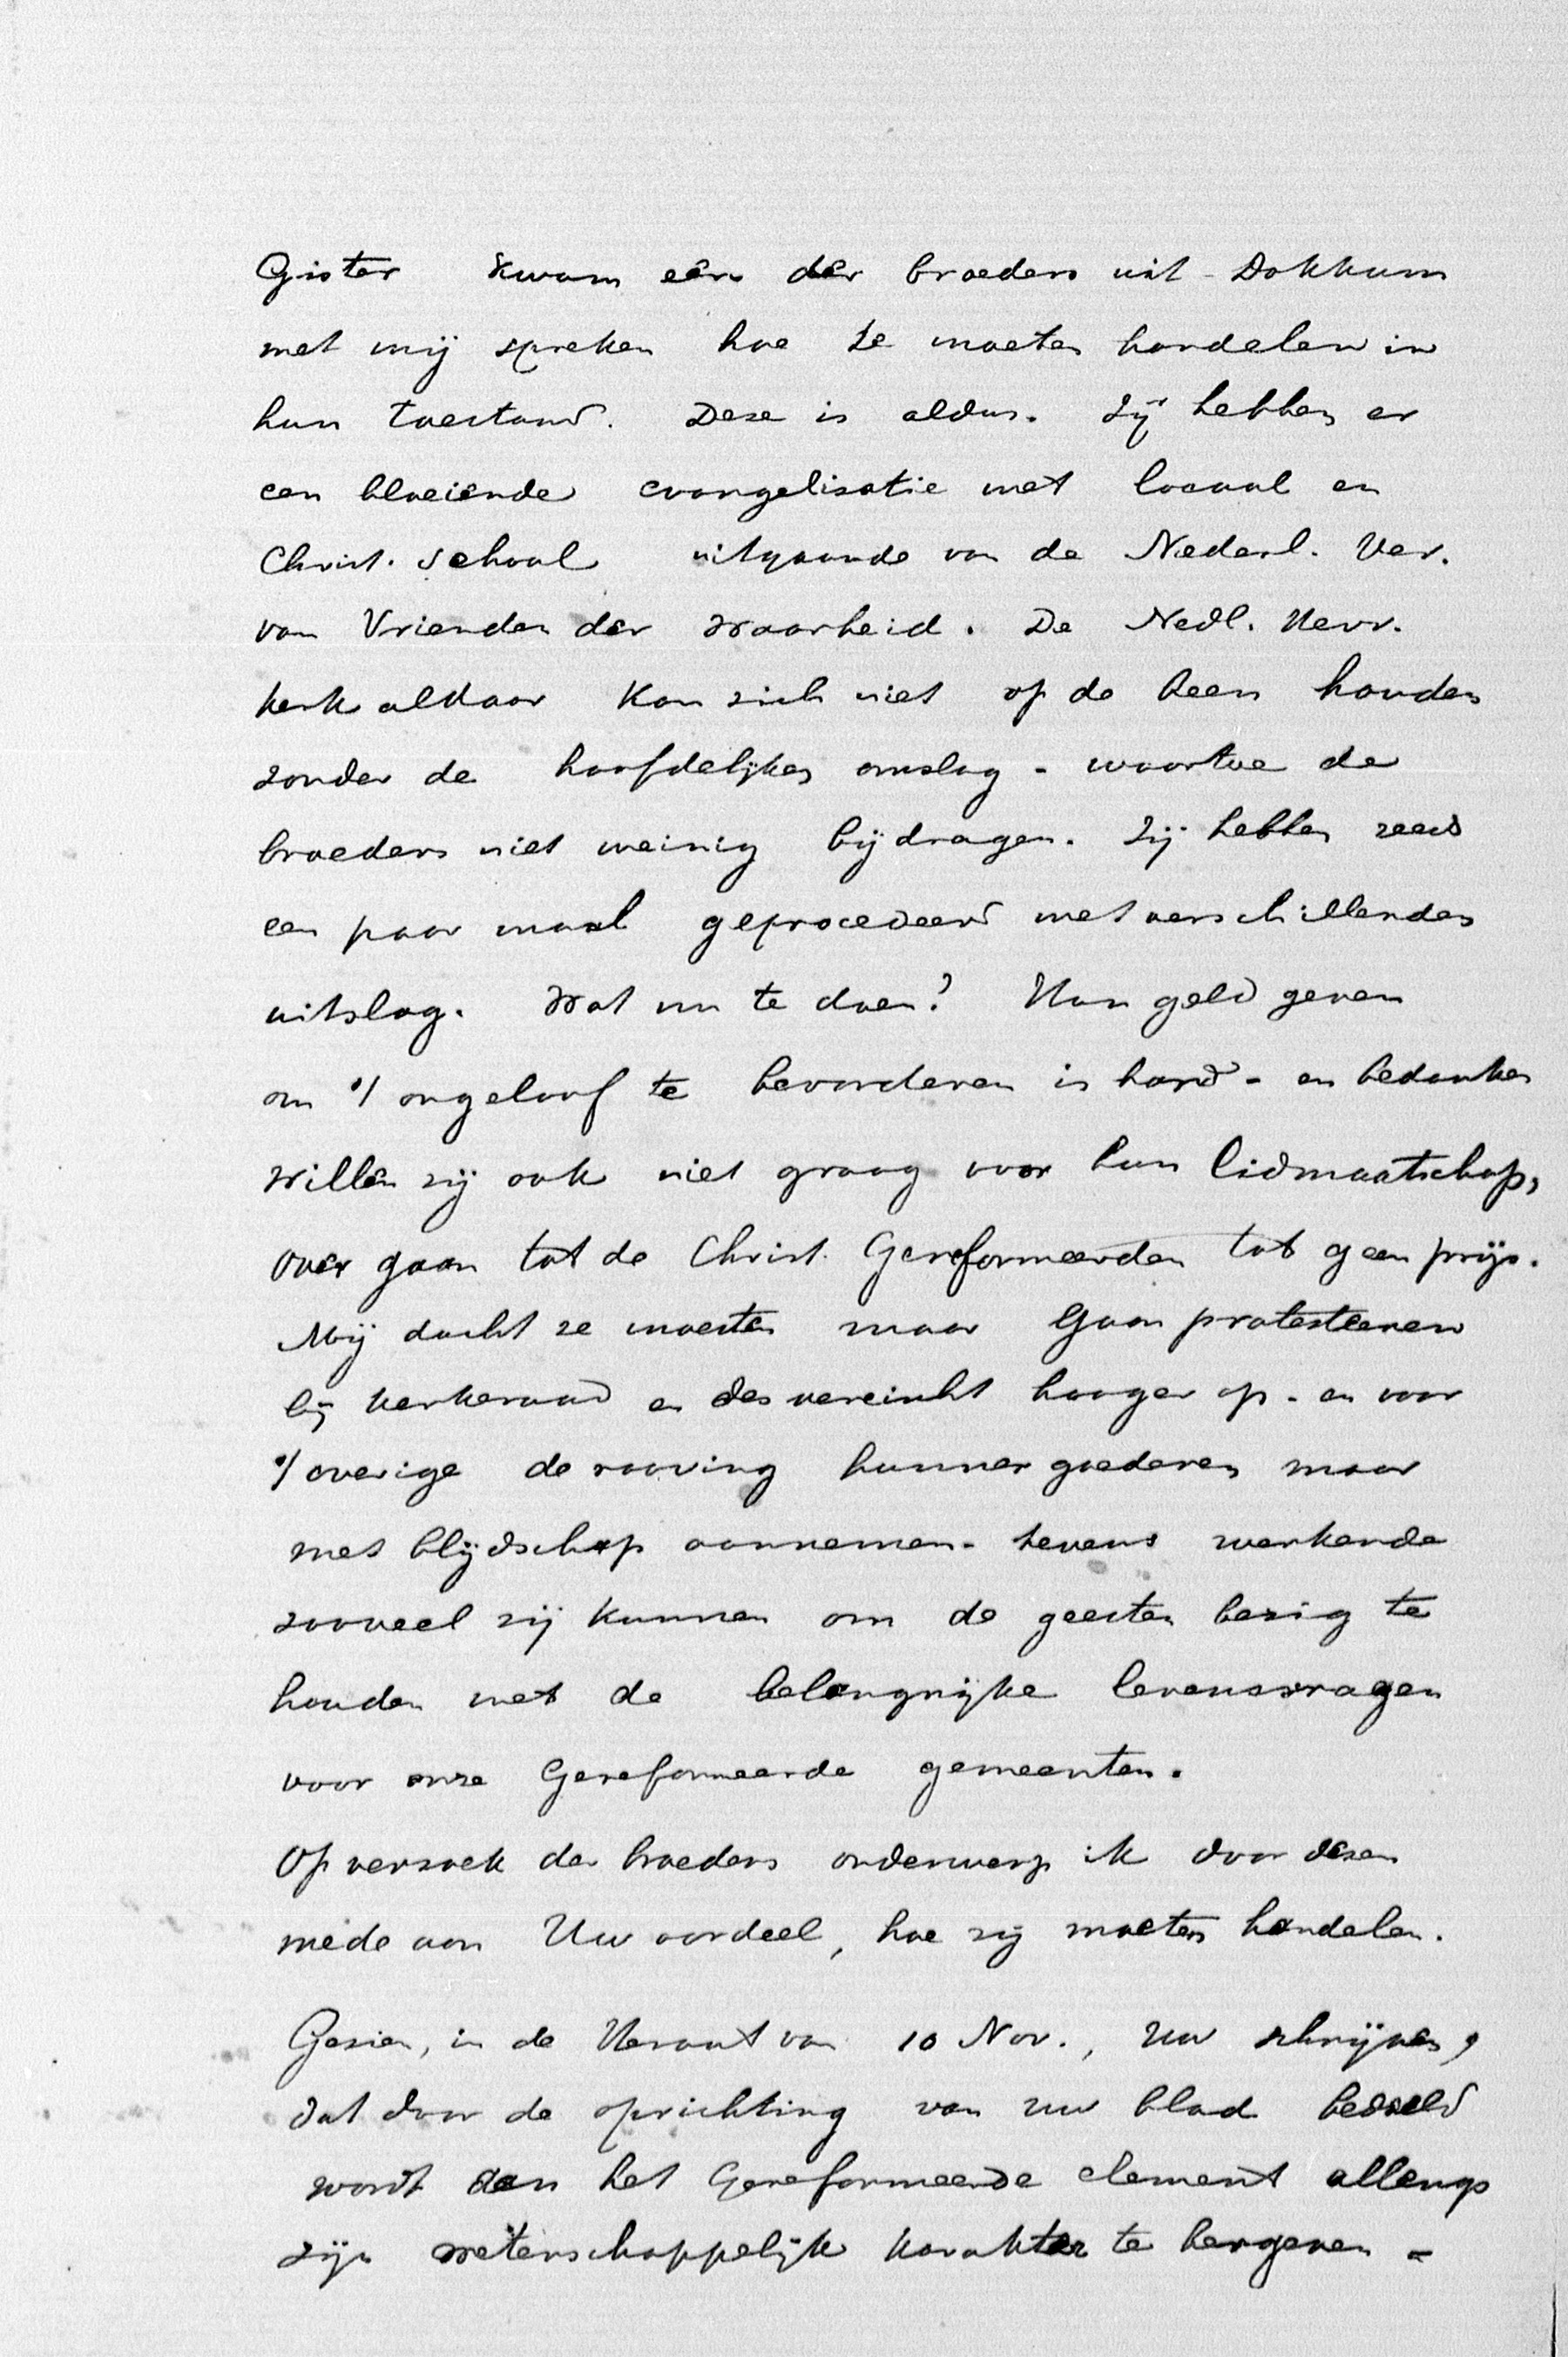 Gister kwam eén der broeders uit Dokkum
met mij spreken hoe ze moeten handelen in
hun toestand. Deze is aldus. Zij hebben er
een bloeiende evangelisatie met locaal en
Christ. school uitgaande van de Nederl. Ver.
van Vrienden der Waarheid. De Nedl. Herv.
kerk aldaar kan zich niet op de been houden
zonder de hoofdelijken omslag - waartoe de
broeders niet weinig bijdragen. Zij hebben reeds
een paar maal geprocedeerd met verschillenden
uitslag. Wat nu te doen? Hun geld geven
om 't ongeloof te bevorderen is hard - en bedanken
willen zij ook niet graag voor hun lidmaatschap,
over gaan tot de Christ. Gereformeerden tot geen prijs.
Mij dacht ze moesten maar gaan protesteeren
bij kerkeraad en des vereischt hooger op - en voor
't overige de rooving hunner goederen maar
met blijdschap aannemen - tevens werkende
zooveel zij kunnen om de geesten bezig te
houden met de belangrijke levensvragen
voor onze Gereformeerde gemeenten.
Op verzoek der broeders onderwerp ik door dezen
mede aan Uw oordeel, hoe zij moeten handelen.
Gezien, in de Heraut van 10 Nov., Uw schrijven,
dat door de oprichting van uw blad bedoeld
wordt aan het Gereformeerde element allengs
zijn wetenschappelijk karakter te hergeven -